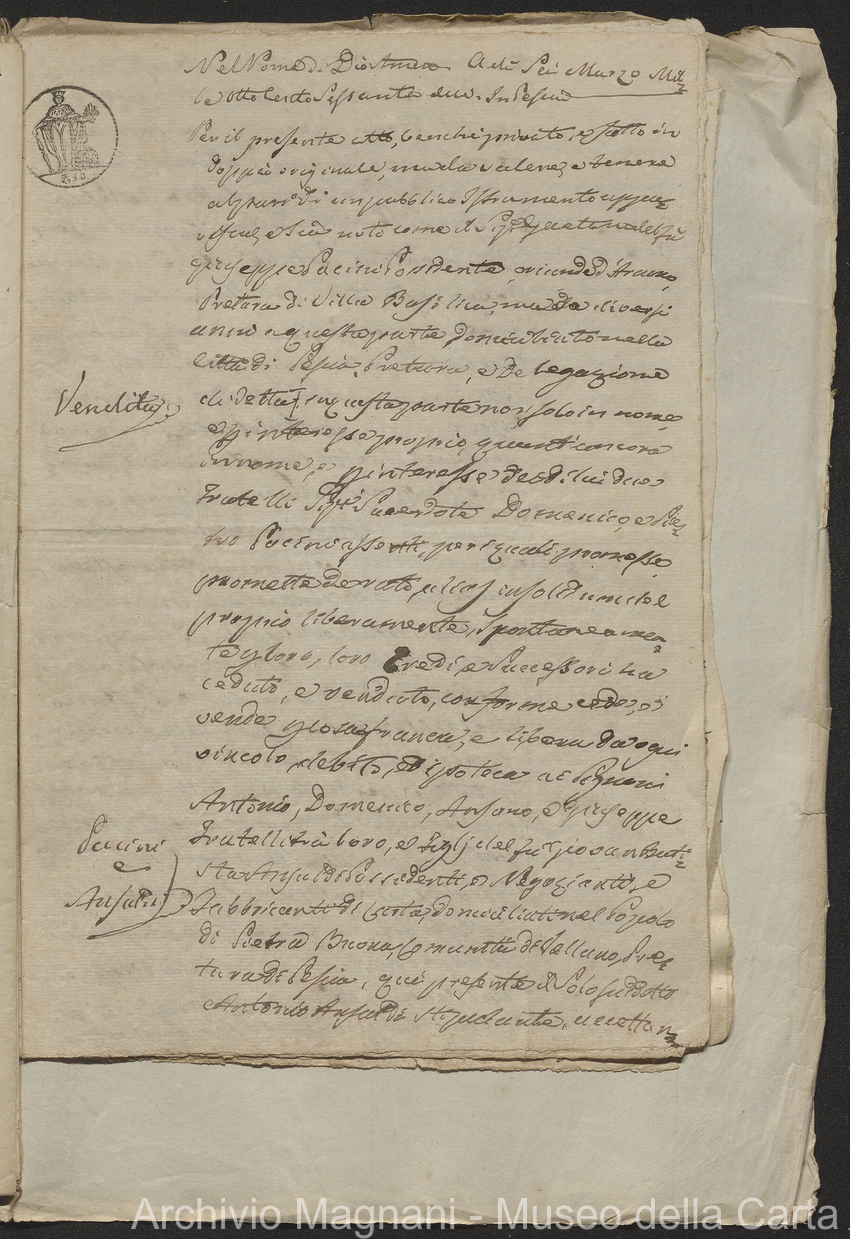 Nel Nome di Dio Amen Adì Sei Marzo Mil=
le Otto Cento Sessanta due. In Pescia
Per il presente atto, benchè privato, e fatto in
doppio originale, ma da valere, e tenere
al pari di un pubblico Istrumento
e sia noto come il Sig.
Giuseppe Pacini Possidente, oriundo d'Aramo,
Pretura di Villa Basilica, ma da diversi
anni a questa parte domiciliato nella
Città di Pescia, Pretura, e Delegazione
di detta, in questa parte non solo in nome,
e p interesse proprio, quanto ancora
in nome, e p interesse dei di lui due
Fratelli Sigri Sacerdote Domenico, e Pie=
tro Pacini assenti, per i quali promesse,
promette de rato, in solidum del
proprio liberamente, spontaneamen=
te p loro, loro Eredi, e Successori ha
ceduto, e venduto, conforme cede, e
vende p cosa franca, e libera da ogni
vincolo, debito, ed ipoteca ai Signori
Antonio, Domenico, Ansano, e Giuseppe
Fratelli trà loro, e Figlj del fù Giovan Bati=
sta Ansaldi Possidenti, e Negozianti, e
Fabbricanti di Carta, domiciliati nel Popolo
di Pietra Buona, Comunità di Vellano, Pre=
tura di Pescia, qui presente il Solo suddetto
Antonio Ansaldi stipulante, accettan=
Vendita
Pacini
e
Ansaldi
Archivio Magnani - Museo della Carta